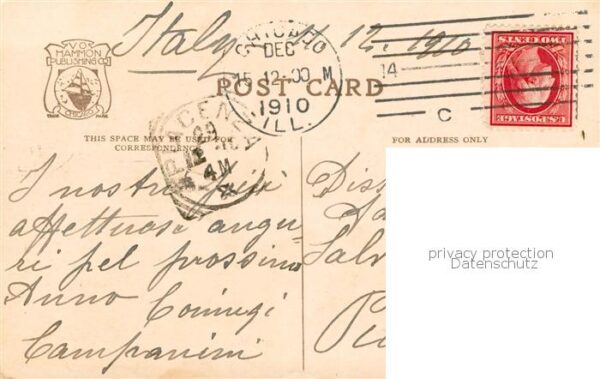 Italy 4, 12, 1910
V.O.
HAMMON
PUBLISHING CO
CHICAGO
TRADE MARK
CHICAGO
DEC
15 12-00 M
1910
ILL.
14
C
U.S. POSTAGE
TWO CENTS
POST CARD
THIS SPACE MAY BE USED FOR
CORRESPONDENCE
FOR ADDRESS ONLY
PIACENZA
4 M
I nostri più
affettuosi augu-
ri pel prossimo
Anno Coniugi
Campanini
privacy protection
Datenschutz